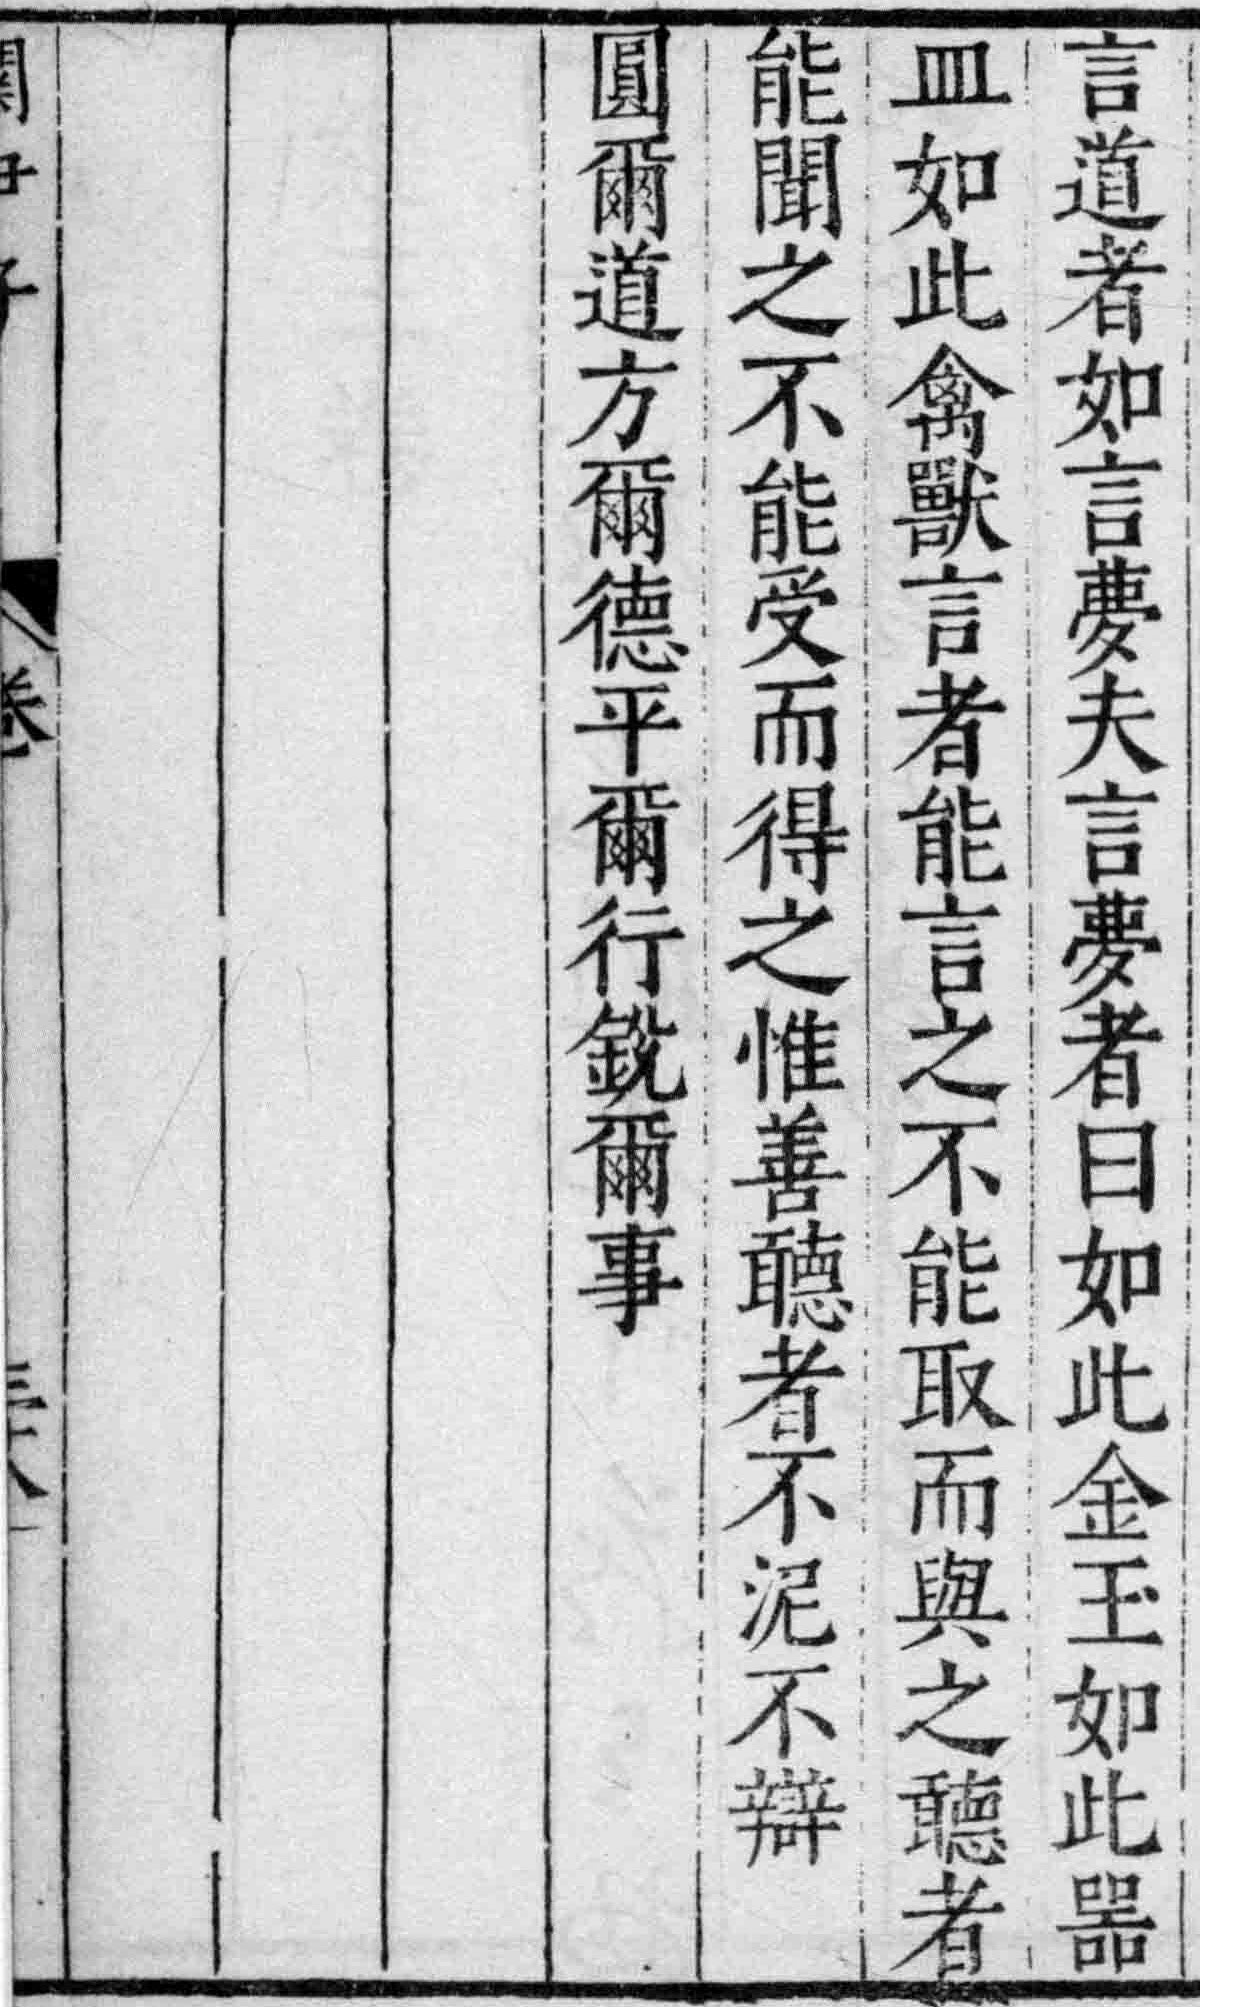 言道者如言夢夫言夢者曰如此金玉如此噐
皿如此禽獸言者能言之不能取而與之聽者
能聞之不能受而得之惟善聽者不泥不辯
圓爾道方爾德平爾行銳爾事